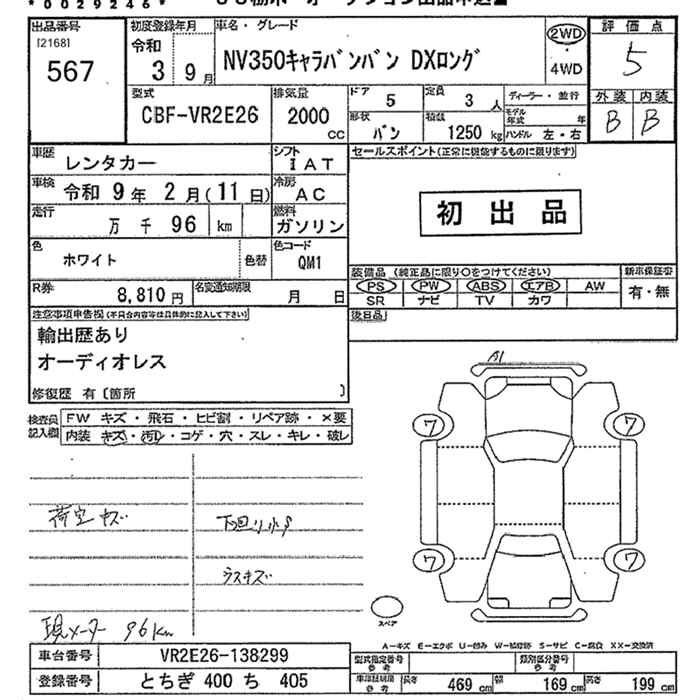 *0029246*
出品番号
[2168]
567
初度登録年月
令和
3 9月
車名・グレード
NV350キャラバンバン DXロング
2WD
・
4WD
評価点
5
外装 内装
B B
型式
CBF-VR2E26
排気量
2000
CC
ドア
5
定員
3人
ディーラー・並行
形状
バン
積載
1250kg
モデル年式 年
ハンドル 左・右
車歴
レンタカー
シフト
IAT
セールスポイント(正常に機能するものに限ります)
車検
令和 9年 2月(11日)
冷房
AC
初出品
走行
万 千 96 km
燃料
ガソリン
色
ホワイト
色替
色コード
QM1
装備品 (純正品に限り○をつけてください)
新車保証書
PS PW ABS エアB AW
有・無
SR ナビ TV カワ
R券
8,810円
名変通知期限
月 日
後日品
注意事項申告欄(不具合内容等は具体的に記入して下さい)
輸出歴あり
オーディオレス
修復歴 有〔箇所 〕
A1
検査員記入欄
FW キズ・飛石・ヒビ割・リペア跡・×要
内装 キズ・汚れ・コゲ・穴・スレ・キレ・破レ
ワ ワ
ワ ワ
荷室キズ
下回り小サ
ラスキズ
現メーター 96km
スペア
A-キズ E-エクボ U-凹み W-補修跡 S-サビ C-腐食 XX-交換済
車台番号
VR2E26-138299
型式指定番号
参考
類別区分番号
参考
登録番号
とちぎ 400 ち 405
車検証記載
参考
長さ 469cm 幅 169cm 高さ 199cm